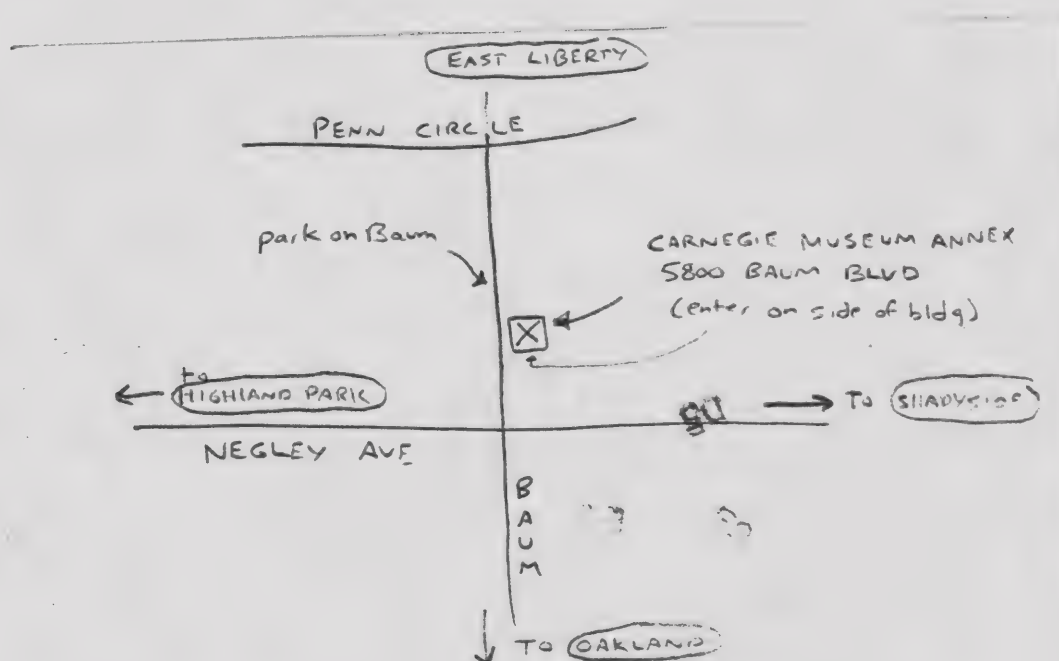 EAST LIBERTY
PENN CIRCLE
park on Baum
CARNEGIE MUSEUM ANNEX
5800 BAUM BLVD
(enter on side of bldg)
to
HIGHLAND PARK
TO SHADYSIDE
NEGLEY AVE
BAUM
TO OAKLAND